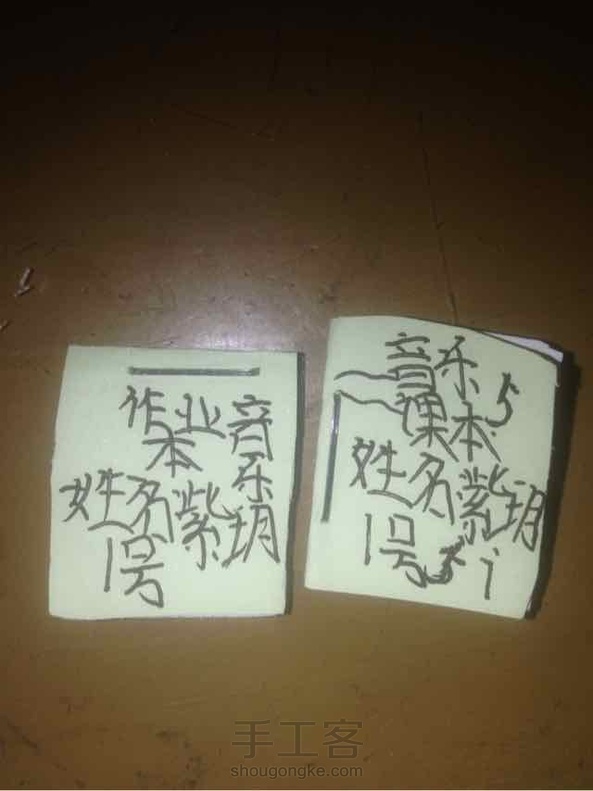 作业
本
音乐
姓名紫玥
1号
音乐
课本
5
姓名紫玥
1号
手工客
shougongke.com